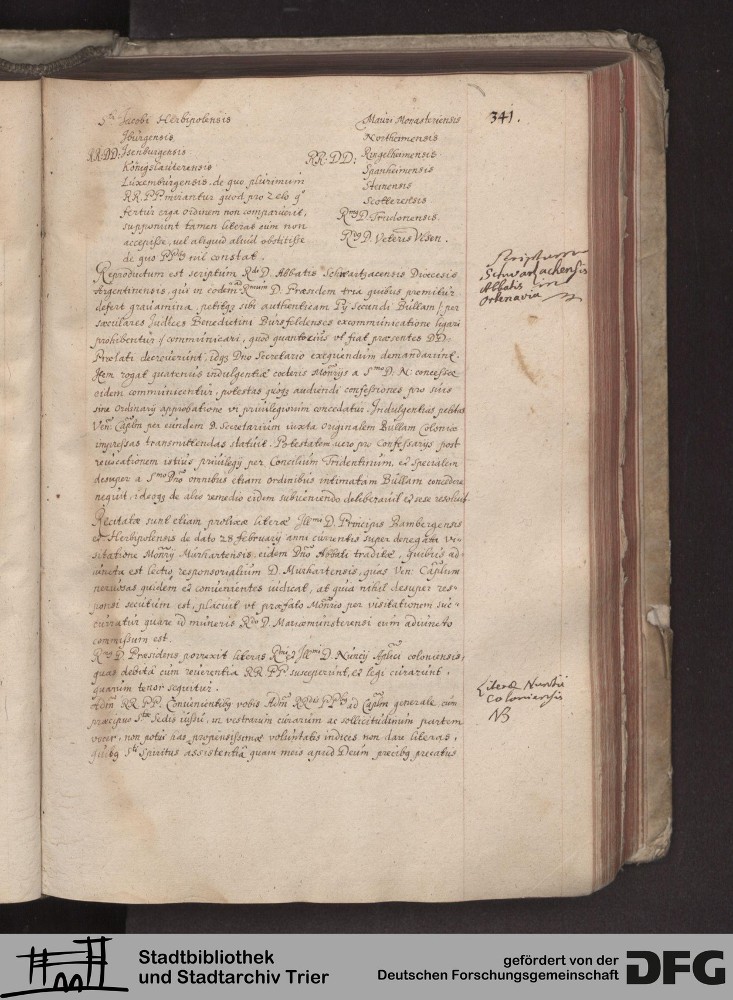 341.
S.ti Jacobi Herbipolensis
Iburgensis
RR.DD. Isenburgensis
Königslauterensis
Luxemburgensis, de quo plurimum
RR. PP. mirantur quod pro zelo q
fertur erga ordinem non comparuerit,
supponunt tamen literas eum non
accepisse, vel aliquid aliud obstitisse
de quo nil constat.
Mauri Monasteriensis
Northeimensis
RR. DD. Ringelheimensis
Spanheimensis
Steinensis
Scotterensis
Rmq D. Trudonensis.
Rdq D. Veteris Vesen.
Reproductum est scriptum Rdi D. Abbatis Schwartzacensis Dioecesis
Argentinensis, qui in eodem ad Rmum D. Præsidem tria quibus premitur
defert gravamina, petitq3 sibi authenticam Pij Secundi Bullam, per
sæculares Judices Benedictini Bursfeldenses excommunicatione ligari
prohibentur communicari, quod quantocius vt fiat præsentes DD.
Prælati decreverunt, idq3 Dno Secretario exequendum demandarunt.
Item rogat quatenus indulgentiæ cæteris Monrijs a Smo D. N. concessæ
eidem communicentur, potestas quoq3 audiendi confessiones pro suis
sine ordinarij approbatione vi privilegiorum concedatur. Indulgentias petitas
Ven: Caplm per eundem D. Secretarium iuxta originalem Bullam Coloniæ
impressas transmittendas statuit. Potestatem vero pro Confessarijs post
revocationem istius privilegij per Concilium Tridentinum, et specialem
desuper a Smo Dno omnibus etiam ordinibus intimatam Bullam concedere
nequit, ideoq3 de alio remedio eidem subveniendo deliberavit et sese resolvit.
Recitatæ sunt etiam prolixæ literæ Illmi D. Principis Bambergensis
et Herbipolensis de dato 28 february anni currentis super denegatam vi-
sitatione Monrij Murhartensis, eidem Dno Abbati traditæ, quibus ad-
iuncta est lectio responsorialium D. Murhartensis, quas Ven: Caplum
nervosas quidem et convenientes iudicat, at quia nihil desuper res-
ponsi secutum est, placuit vt præfato Monrio per visitationem suc-
curratur quare id muneris Rdo D. Mariæmünsterensi cum adiuncto
commissum est.
Rmq D. Præsidens porrexit literas Rmi et Illmi D. Nuncij Aplici coloniensis,
quas debita cum reverentia RR. PP susceperunt, et legi curarunt,
quarum tenor sequitur.
Adm RR. PP. Convenientibq vobis Adm RRdis PPbq ad Caplm generale, cum
præcipuo Stæ Sedis iussu, in vestrarum curarum ac sollicitudinum partem
vocer, non potui has propensissimæ voluntatis indices non dare literas,
quibq Sti Spiritus assistentia quam meis apud Deum precibq precatus
Scriptum
Schwarzachensis
Abbatis in
Ortenavia
Literæ Nuntii
Coloniensis
NB
Stadtbibliothek
und Stadtarchiv Trier
gefördert von der
Deutschen Forschungsgemeinschaft
DFG